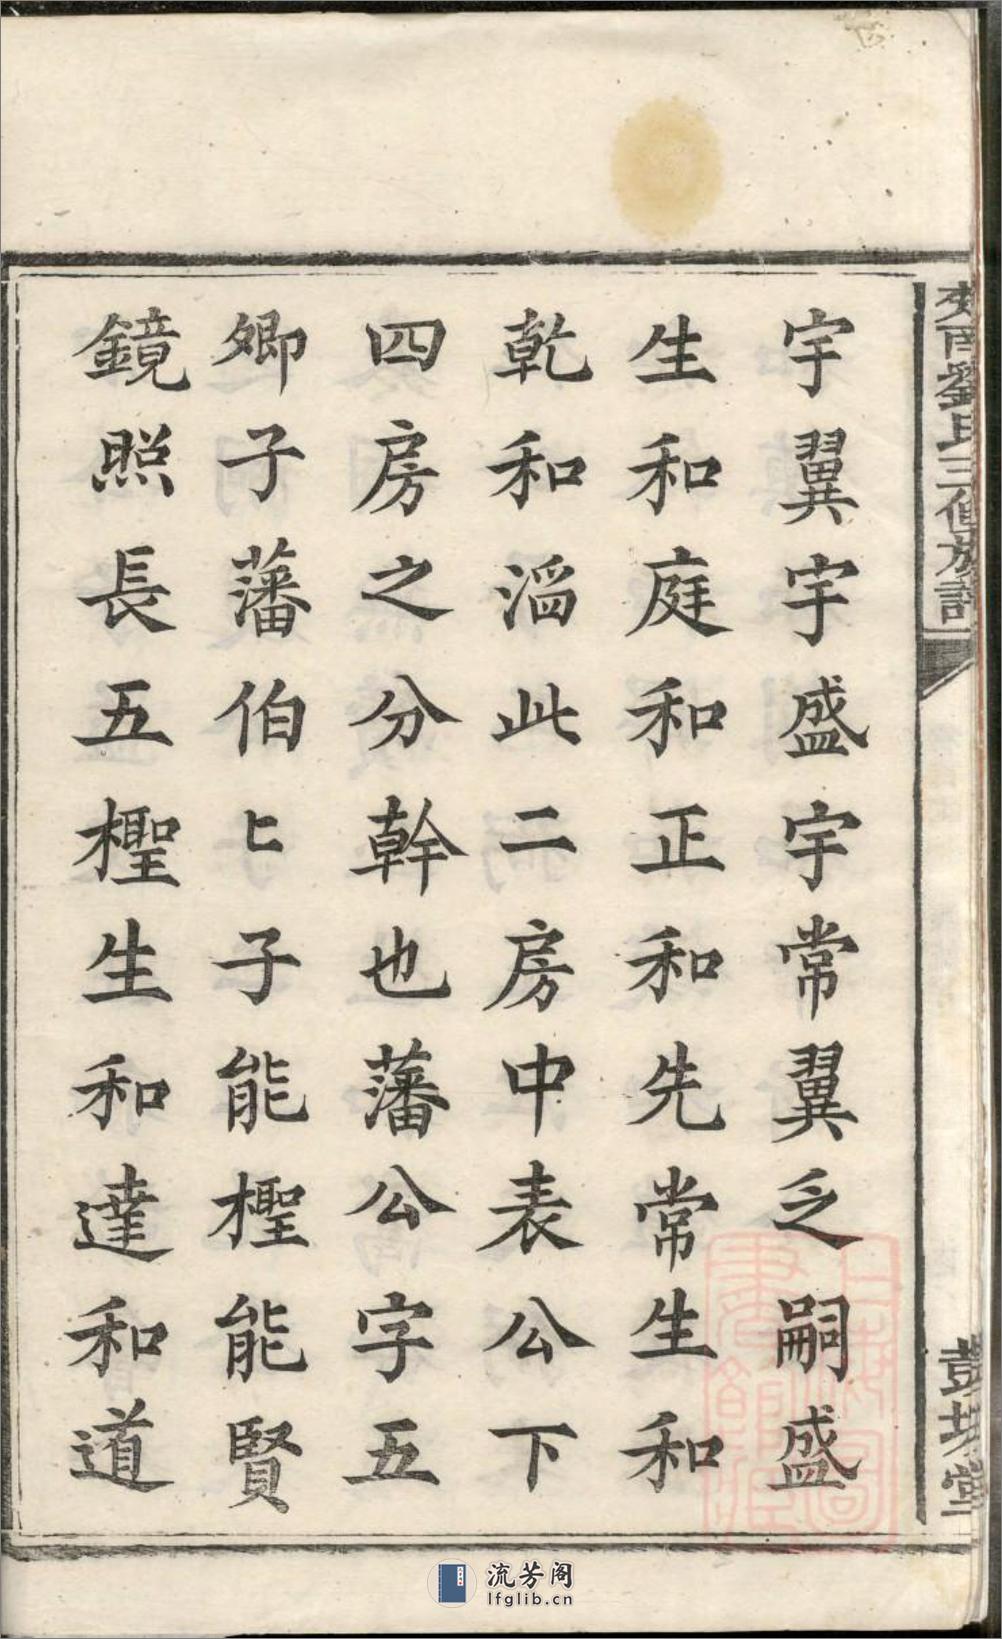 安西劉氏三修族譜
彭城堂
宇翼宇盛宇常翼乏嗣盛
生和庭和正和先常生和
乾和滔此二房中表公下
四房之分幹也藩公字五
卿子藩伯匕子能檉能賢
鏡照長五檉生和達和道
流芳阁
lfglib.cn